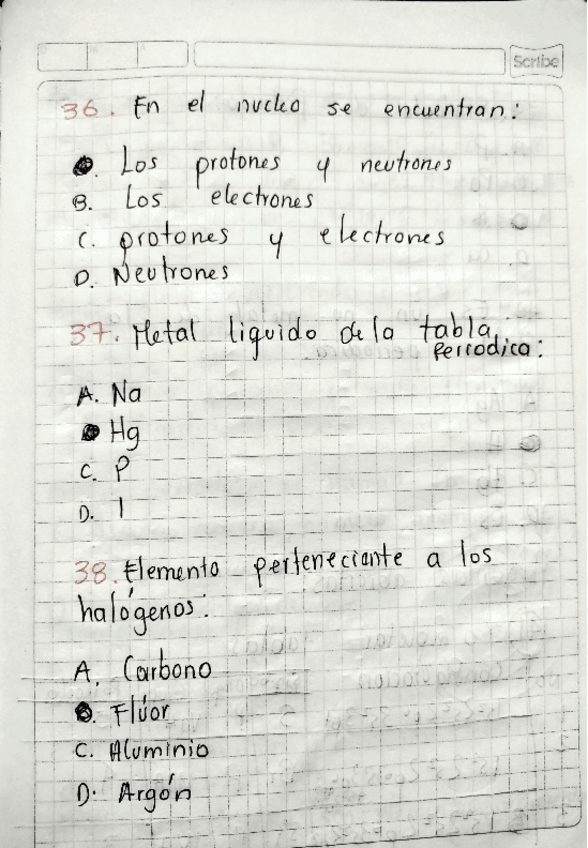 Scribe
36. En el nucleo se encuentran:
A. Los protones y neutrones
B. Los electrones
C. protones y electrones
D. Neutrones
37. Metal liquido de la tabla
Periodica:
A. Na
B. Hg
C. P
D. I
38. Elemento perteneciante a los
halógenos:
A. Carbono
B. Flúor
C. Aluminio
D. Argón